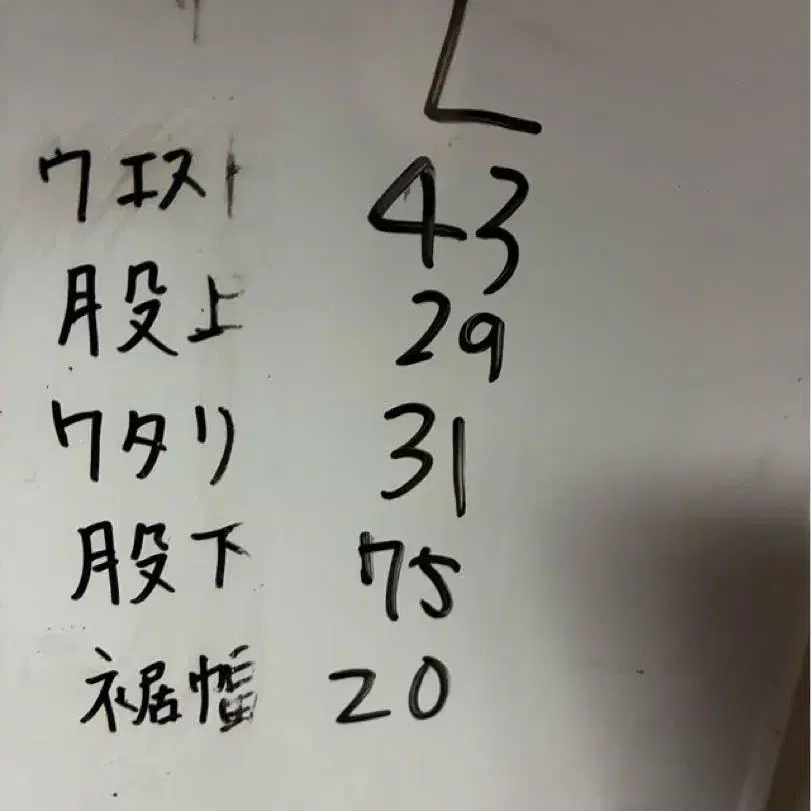 L
ウエスト 43
股上 29
ワタリ 31
股下 75
裾幅 20